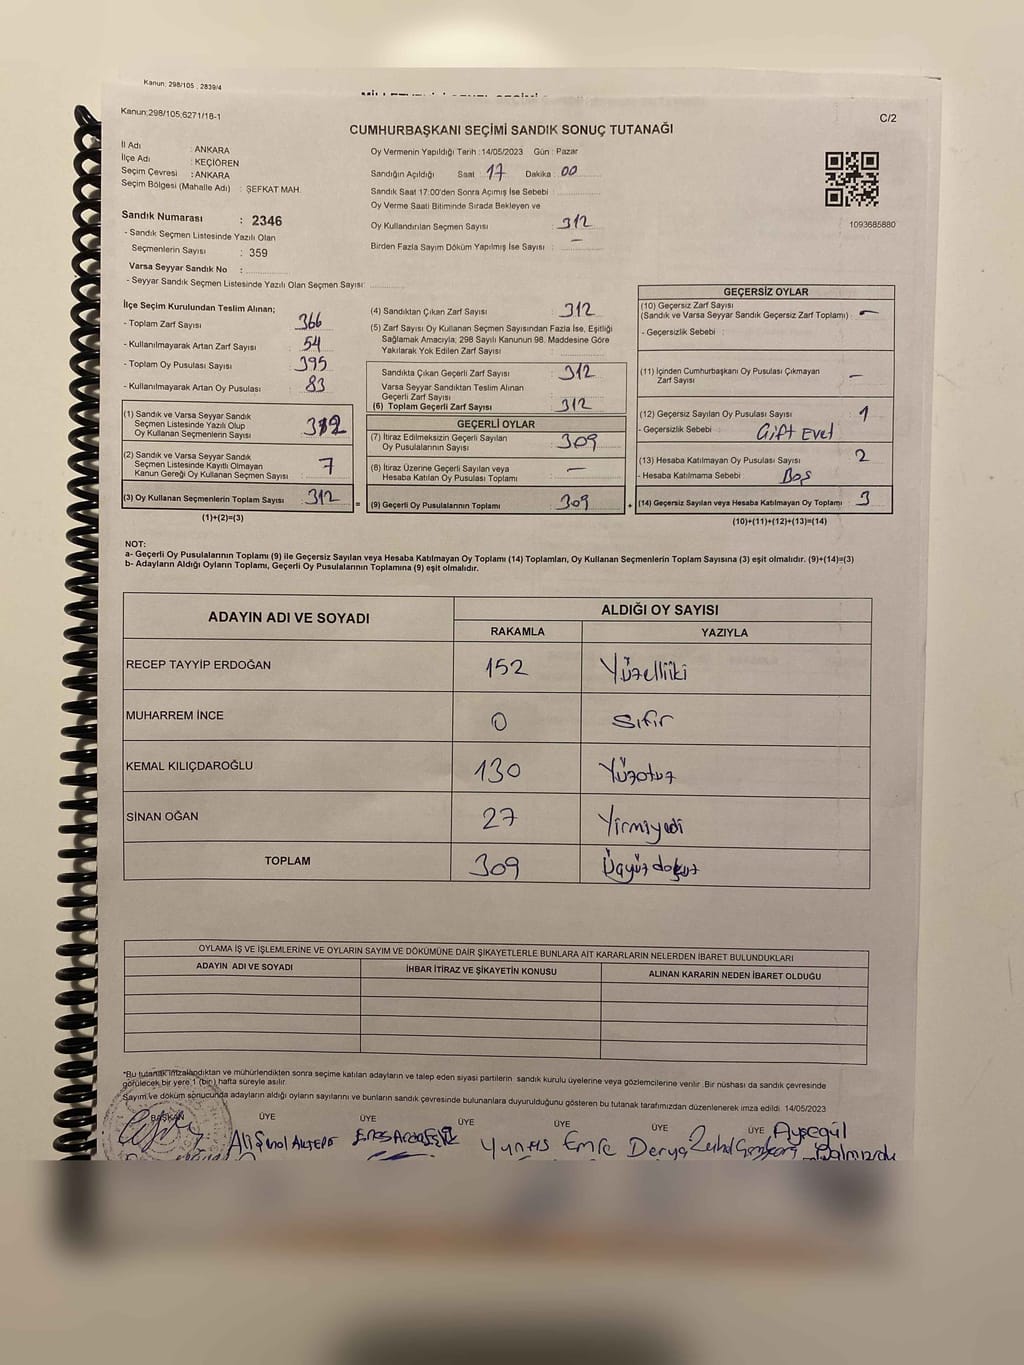 Kanun; 298/105 ; 2839/4
Kanun;298/105;6271/18-1
C/2
CUMHURBAŞKANI SEÇİMİ SANDIK SONUÇ TUTANAĞI
İl Adı : ANKARA
İlçe Adı : KEÇİÖREN
Seçim Çevresi : ANKARA
Seçim Bölgesi (Mahalle Adı) : ŞEFKAT MAH.
Oy Vermenin Yapıldığı Tarih :14/05/2023 Gün : Pazar
Sandığın Açıldığı Saat : 17 Dakika : 00
Sandık Saat 17.00'den Sonra Açımış İse Sebebi :
Oy Verme Saati Bitiminde Sırada Bekleyen ve
Oy Kullandırılan Seçmen Sayısı : 312
Birden Fazla Sayım Döküm Yapılmış İse Sayısı : —
1093685880
Sandık Numarası : 2346
- Sandık Seçmen Listesinde Yazılı Olan
Seçmenlerin Sayısı : 359
Varsa Seyyar Sandık No :
- Seyyar Sandık Seçmen Listesinde Yazılı Olan Seçmen Sayısı:
İlçe Seçim Kurulundan Teslim Alınan;
- Toplam Zarf Sayısı : 366
- Kullanılmayarak Artan Zarf Sayısı : 54
- Toplam Oy Pusulası Sayısı : 395
- Kullanılmayarak Artan Oy Pusulası : 83
(1) Sandık ve Varsa Seyyar Sandık
Seçmen Listesinde Yazılı Olup
Oy Kullanan Seçmenlerin Sayısı
(2) Sandık ve Varsa Seyyar Sandık
Seçmen Listesinde Kayıtlı Olmayan
Kanun Gereği Oy Kullanan Seçmen Sayısı : 7
(3) Oy Kullanan Seçmenlerin Toplam Sayısı : 312
(1)+(2)=(3)
(4) Sandıktan Çıkan Zarf Sayısı : 312
(5) Zarf Sayısı Oy Kullanan Seçmen Sayısından Fazla İse, Eşitliği
Sağlamak Amacıyla; 298 Sayılı Kanunun 98. Maddesine Göre
Yakılarak Yok Edilen Zarf Sayısı :
Sandıkta Çıkan Geçerli Zarf Sayısı : 312
Varsa Seyyar Sandıktan Teslim Alınan
Geçerli Zarf Sayısı :
(6) Toplam Geçerli Zarf Sayısı : 312
GEÇERLİ OYLAR
(7) İtiraz Edilmeksizin Geçerli Sayılan
Oy Pusulalarının Sayısı : 309
(8) İtiraz Üzerine Geçerli Sayılan veya
Hesaba Katılan Oy Pusulası Toplamı : —
(9) Geçerli Oy Pusulalarının Toplamı : 309
GEÇERSİZ OYLAR
(10) Geçersiz Zarf Sayısı
(Sandık ve Varsa Seyyar Sandık Geçersiz Zarf Toplamı) : —
- Geçersizlik Sebebi :
(11) İçinden Cumhurbaşkanı Oy Pusulası Çıkmayan
Zarf Sayısı : —
(12) Geçersiz Sayılan Oy Pusulası Sayısı : 1
- Geçersizlik Sebebi : Çift Evet
(13) Hesaba Katılmayan Oy Pusulası Sayısı : 2
- Hesaba Katılmama Sebebi : Boş
(14) Geçersiz Sayılan veya Hesaba Katılmayan Oy Toplamı : 3
(10)+(11)+(12)+(13)=(14)
NOT:
a- Geçerli Oy Pusulalarının Toplamı (9) ile Geçersiz Sayılan veya Hesaba Katılmayan Oy Toplamı (14) Toplamları, Oy Kullanan Seçmenlerin Toplam Sayısına (3) eşit olmalıdır. (9)+(14)=(3)
b- Adayların Aldığı Oyların Toplamı, Geçerli Oy Pusulalarının Toplamına (9) eşit olmalıdır.
ADAYIN ADI VE SOYADI
ALDIĞI OY SAYISI
RAKAMLA YAZIYLA
RECEP TAYYİP ERDOĞAN 152 Yüzelliiki
MUHARREM İNCE 0 Sıfır
KEMAL KILIÇDAROĞLU 130 Yüzotuz
SİNAN OĞAN 27 Yirmiyedi
TOPLAM 309 Üçyüz dokuz
OYLAMA İŞ VE İŞLEMLERİNE VE OYLARIN SAYIM VE DÖKÜMÜNE DAİR ŞİKAYETLERLE BUNLARA AİT KARARLARIN NELERDEN İBARET BULUNDUKLARI
ADAYIN ADI VE SOYADI İHBAR İTİRAZ VE ŞİKAYETİN KONUSU ALINAN KARARIN NEDEN İBARET OLDUĞU
*Bu tutanak imzalandıktan ve mühürlendikten sonra seçime katılan adayların ve talep eden siyasi partilerin sandık kurulu üyelerine veya gözlemcilerine verilir .Bir nüshası da sandık çevresinde
görülecek bir yere 1 (bir) hafta süreyle asılır.
Sayım ve döküm sonucunda adayların aldığı oyların sayılarını ve bunların sandık çevresinde bulunanlara duyurulduğunu gösteren bu tutanak tarafımızdan düzenlenerek imza edildi. 14/05/2023
BAŞKAN ÜYE ÜYE ÜYE ÜYE ÜYE ÜYE
Yunus Emre Derya Ayşegül